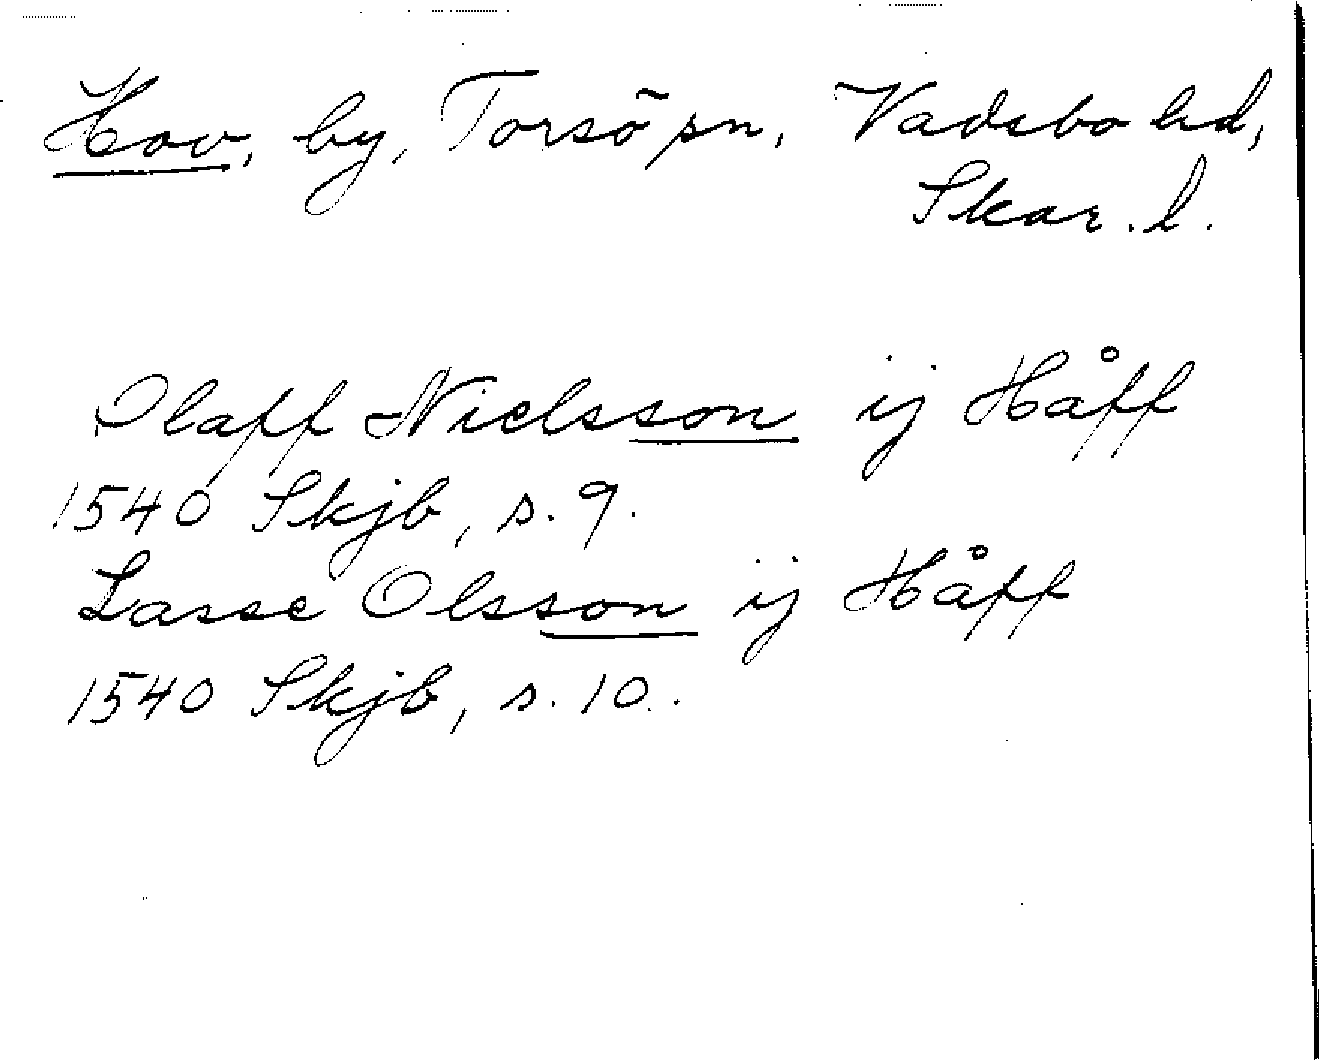 Hov, by, Torsö sn, Vadsbo hd,
Skar. l.
Olaff Nielsson ij Håff
1540 Skjb, s. 9.
Lasse Olsson ij Håff
1540 Skjb, s. 10.